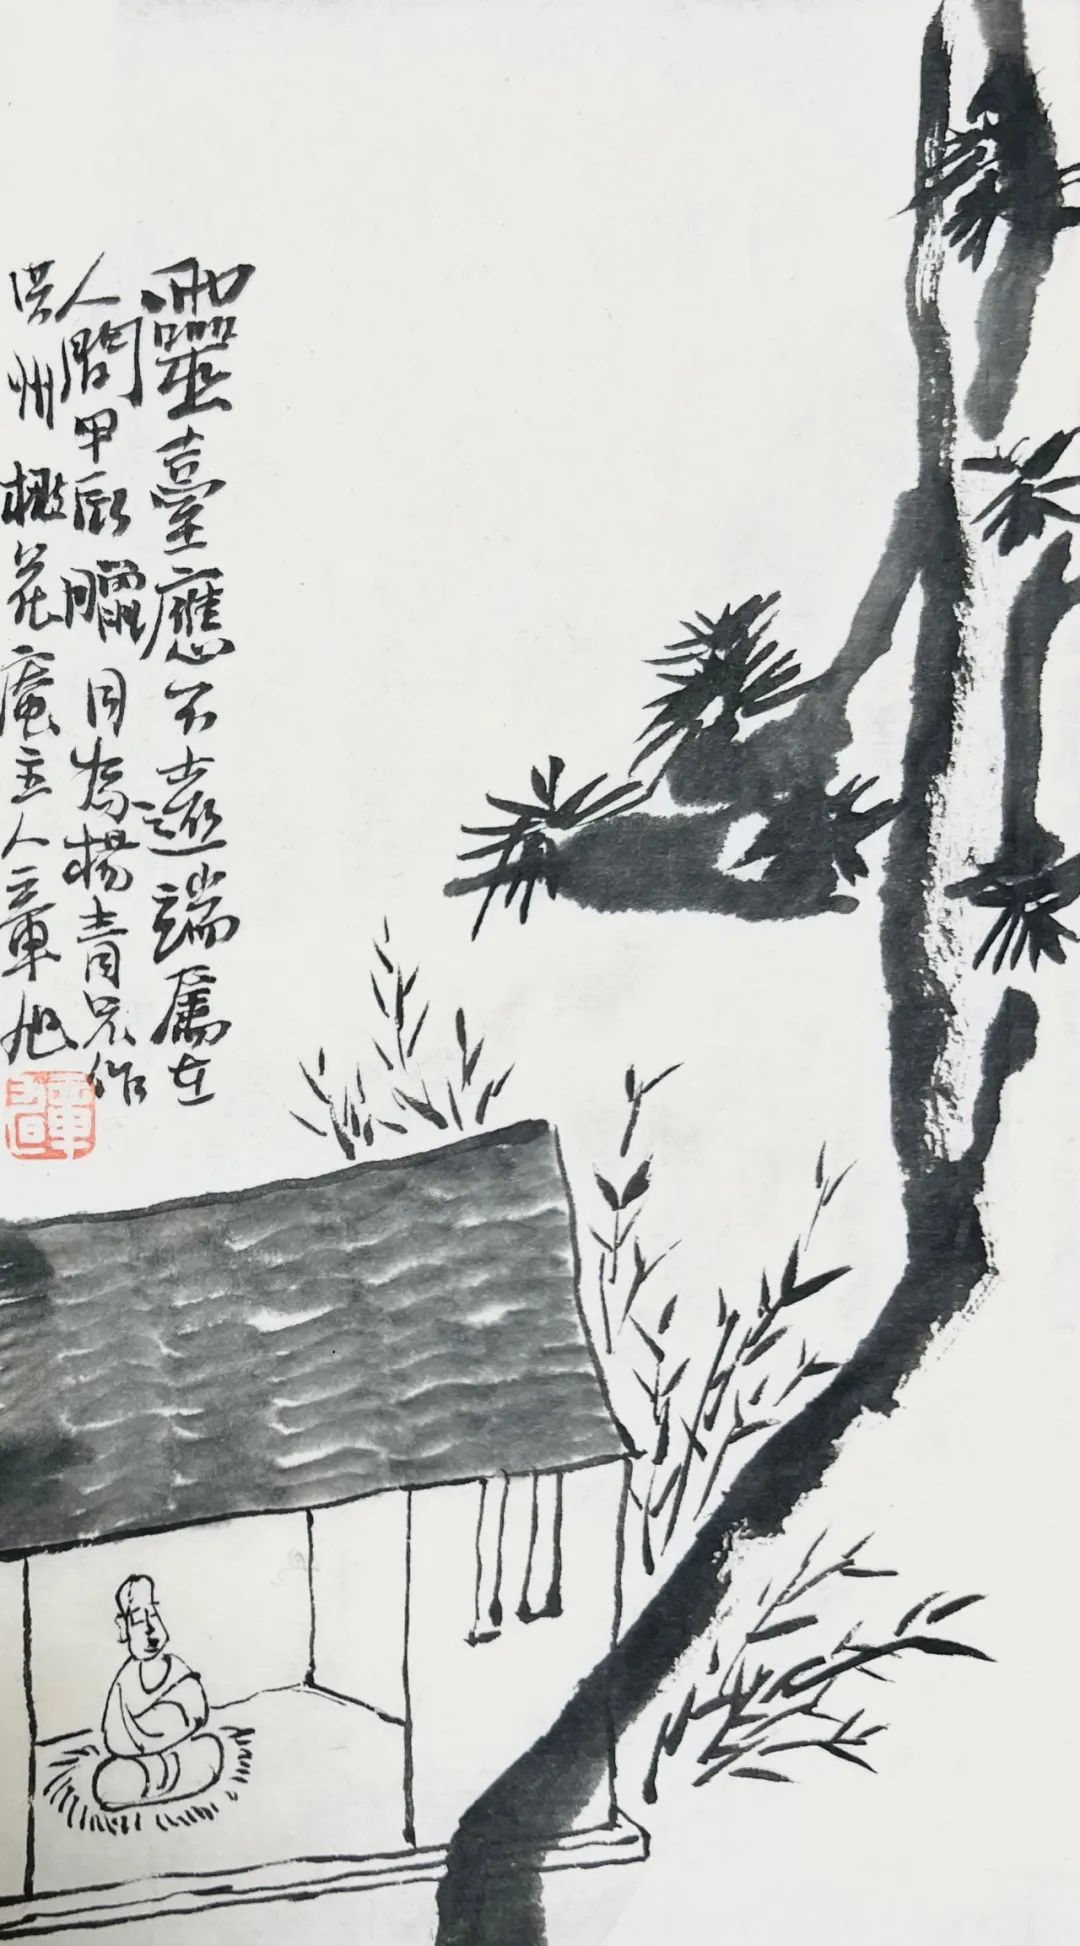 靈臺應不遠端屬在
人間甲辰臘月為楊青兄作
洪州花庵主人章旭